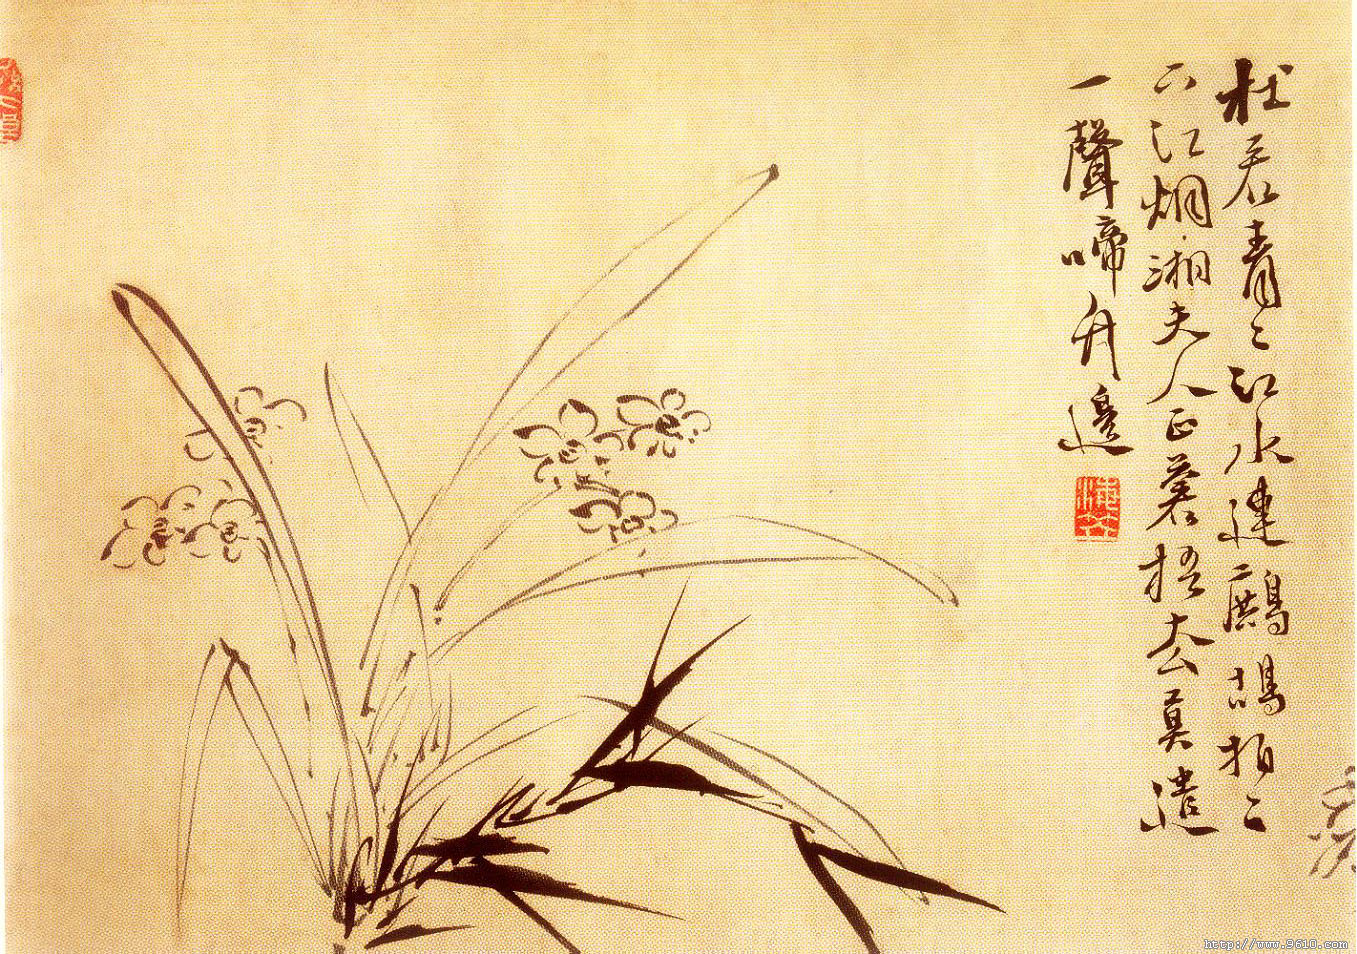 杜若青〻江水連鷓鴣拍〻
下江烟湘夫人正蒼梧去莫遣
一聲啼竹邊
http://www.9610.com